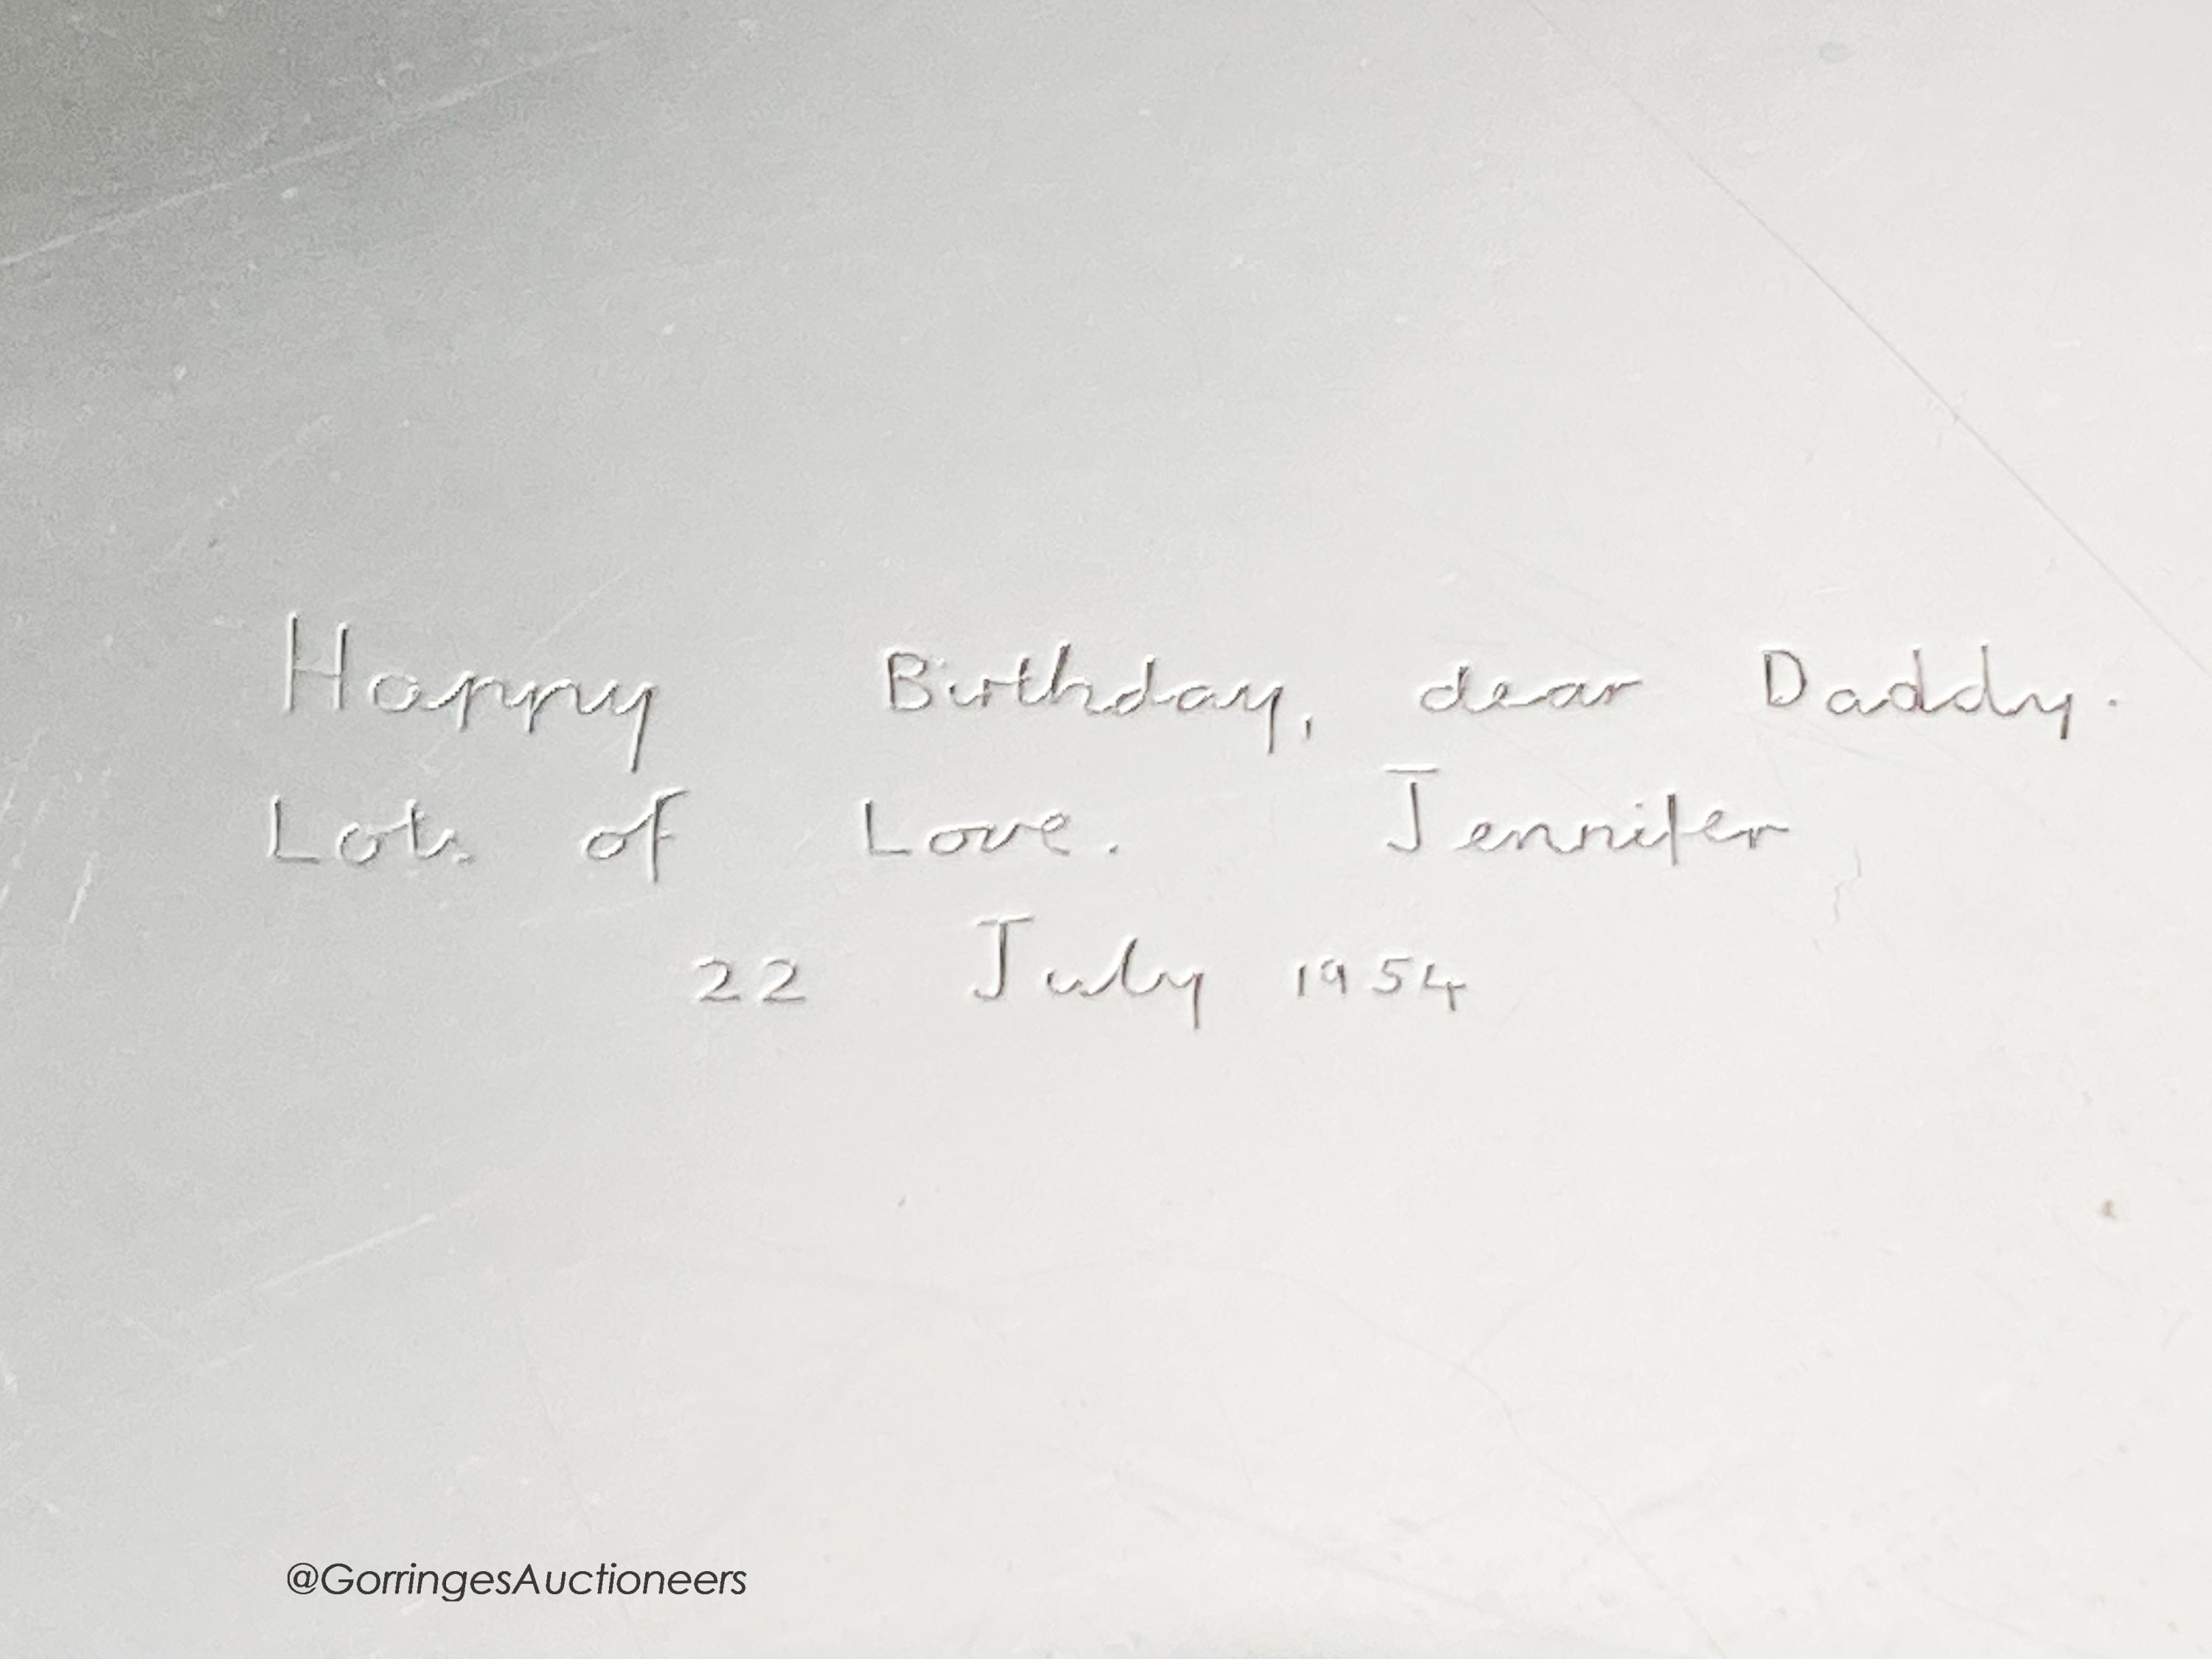 Happy Birthday, dear Daddy.
Lots of Love. Jennifer
22 July 1954
@GorringesAuctioneers